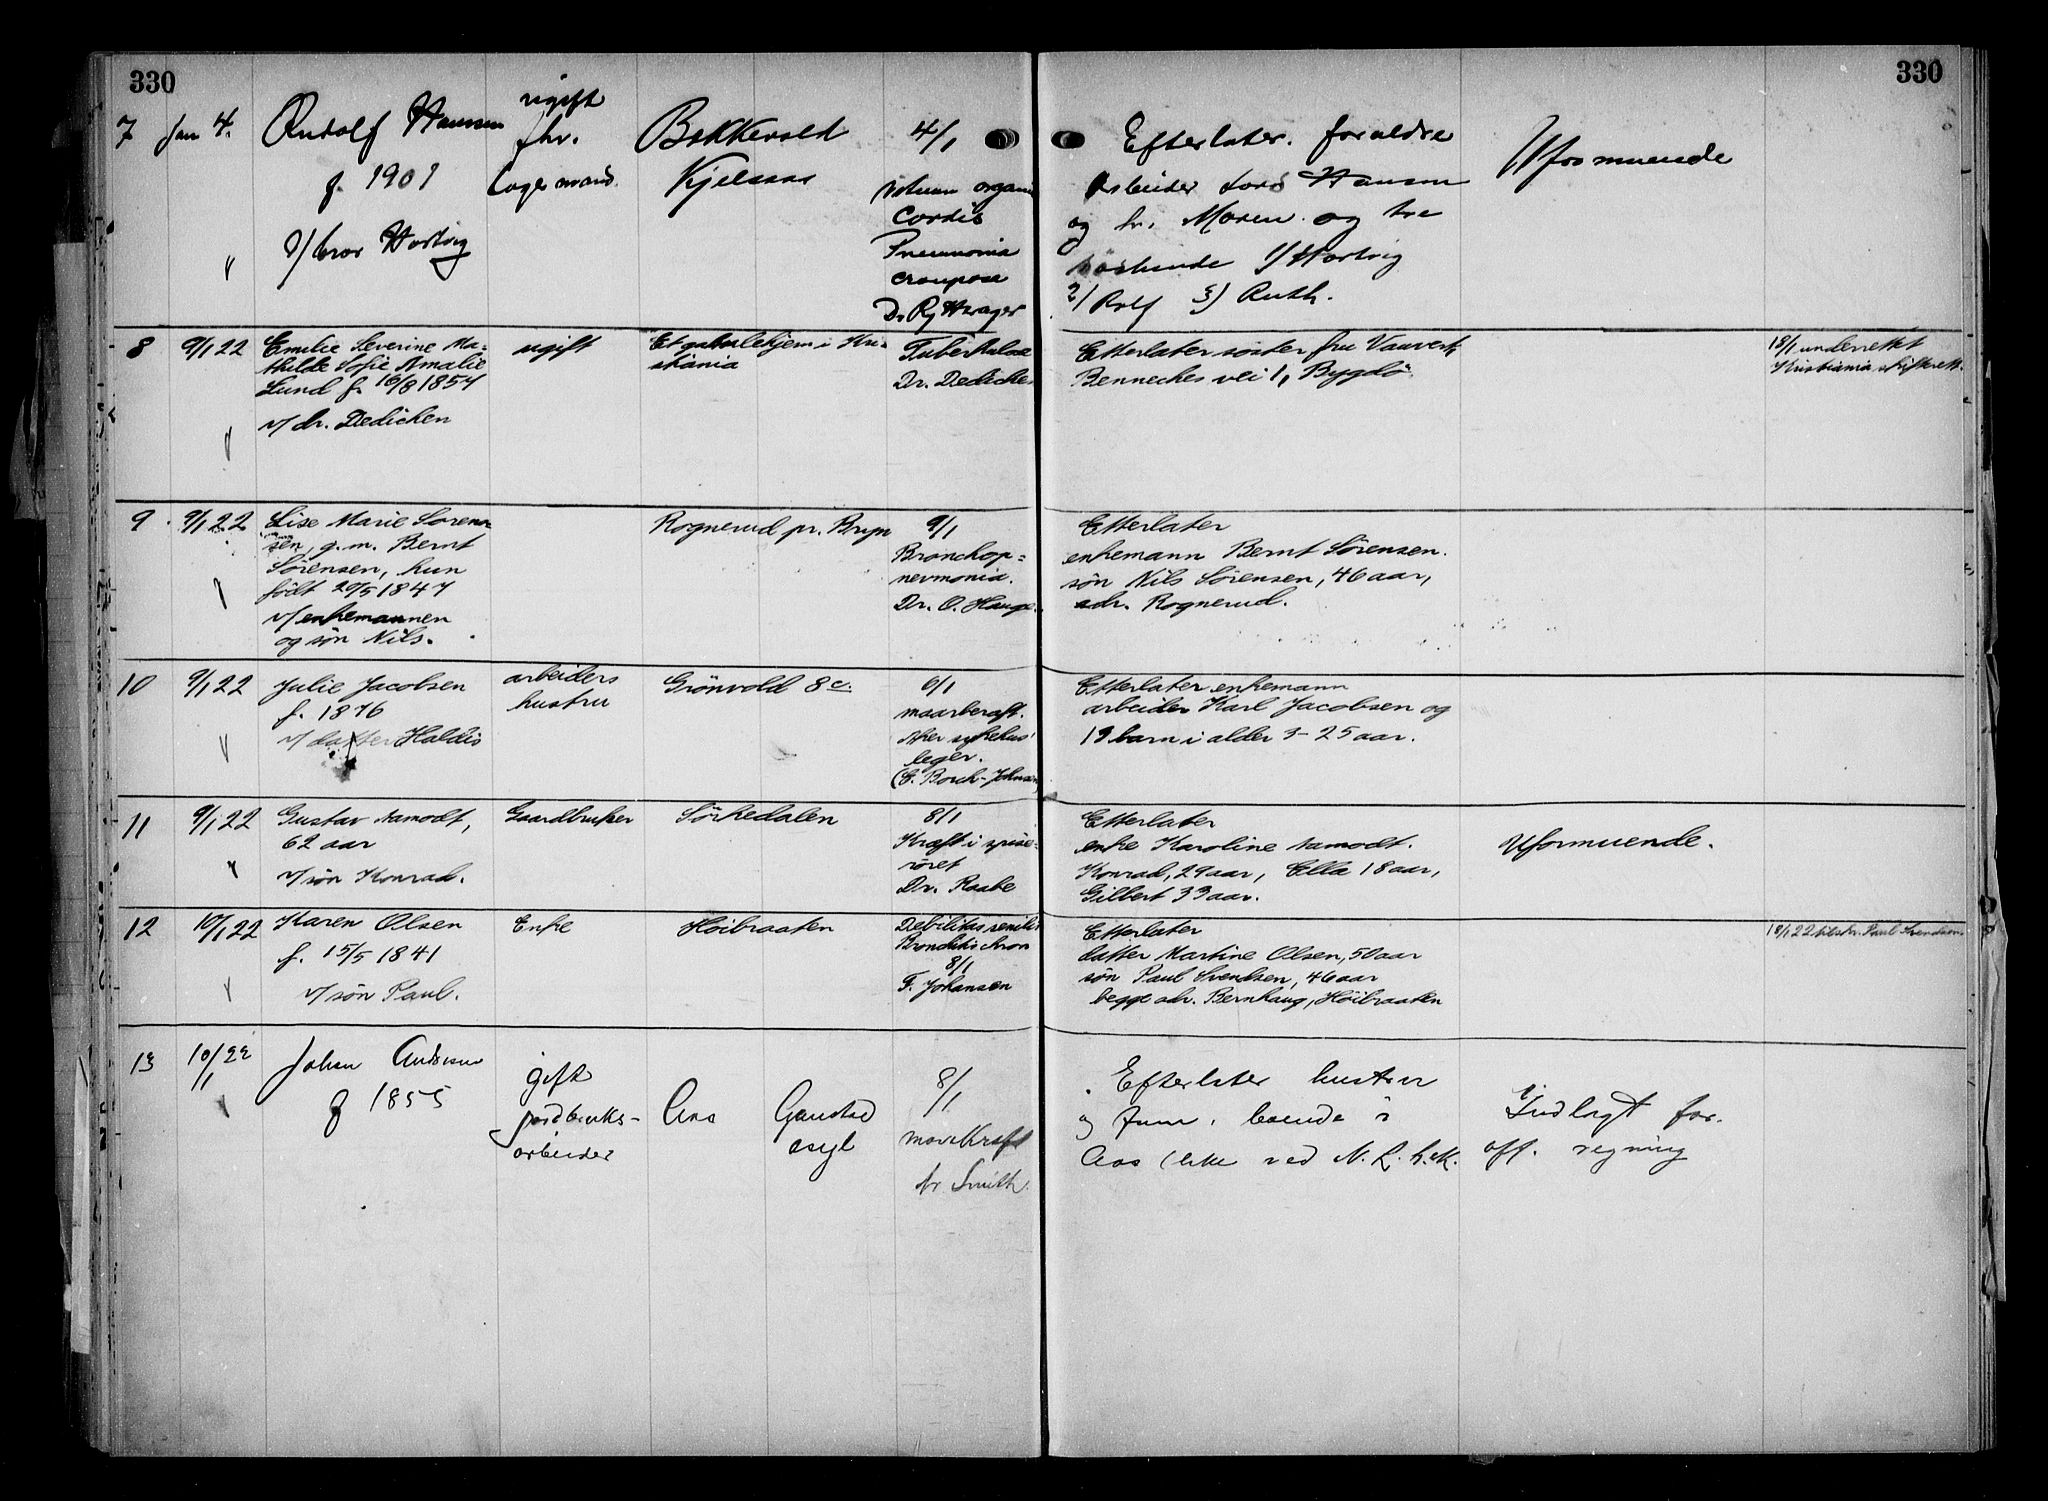 330
330
7 Jan 4. Rudolf Hansen
f. 1901
v/ bror Hartvig
ugift
fhv.
Lagermand.
Bakkevold
Kjelsaas
4/1
Vitium organ
Cordis
Pneumonia
crouposa
Dr.
Efterlater. forældre
Arbeider Lars Hansen
og h. Maren. og tre
søskende 1/ Hartvig
2/ Rolf 3) Ruth.
Uformuende
8 9/1 22 Emilie Severine Ma-
thilde Sofie Amalie
Lund f. 16/8 1857
v/ dr. Dedichen
ugift
Et gamlehjem i Kri-
stiania
Tuberkulose
Dr. Dedichen
Etterlater søster fru
Benneches vei 1, Bygdø
18/1 underrettet
Kristiania skifterett.
9 9/1 22 Lise Marie Sørens-
sen, g.m. Bernt
Sørensen, hun
født 29/5 1847
v/ enkemannen
og søn Nils.
Rognerud pr. Bryn
9/1
Bronchop-
nevmonia.
Dr. O. Hauge.
Etterlater
enkemann Bernt Sørensen.
søn Nils Sørensen, 46 aar,
adr. Rognerud.
10 9/1 22 Julie Jacobsen
f. 1876
v/ datter Haldis
arbeiders
hustru
Grönvold 8 c.
6/1
maarkraft.
Aker sykehus'
leger.
(C. Borch-Johnsen)
Etterlater enkemann
arbeider Karl Jacobsen og
13 barn i alder 3-25 aar.
11 9/1 22 Gustav Aamodt,
62 aar
v/ søn Konrad.
Gaardbruker
Sörkedalen
8/1
Kræft i spise-
röret
Dr. Raabe
Etterlater
enke Karoline Aamodt.
Konrad, 29 aar, Ella 18 aar,
Gilbert 33 aar.
Uformuende.
12 10/1 22 Karen Olsen
f. 15/5 1841
v/ søn Paul.
Enke
Høibraaten
Debilitas senilis
Bronchitis chron
8/1
F. Johansen
Etterlater
datter Martine Olsen, 50 aar
søn Paul Svendsen, 46 aar
begge adr. Bernhaug, Høibraaten
18/1 22 tilskr. Paul Svendsen
13 10/1 22 Johan Andersen
f 1855
gift
jordbruks-
arbeider
Aas
Gaustad
asyl
8/1
mavekræft
dr Smith.
Efterlater hustru
og boende i
Aas (like ved N. L. h.sk.
Indlagt for
off. regning